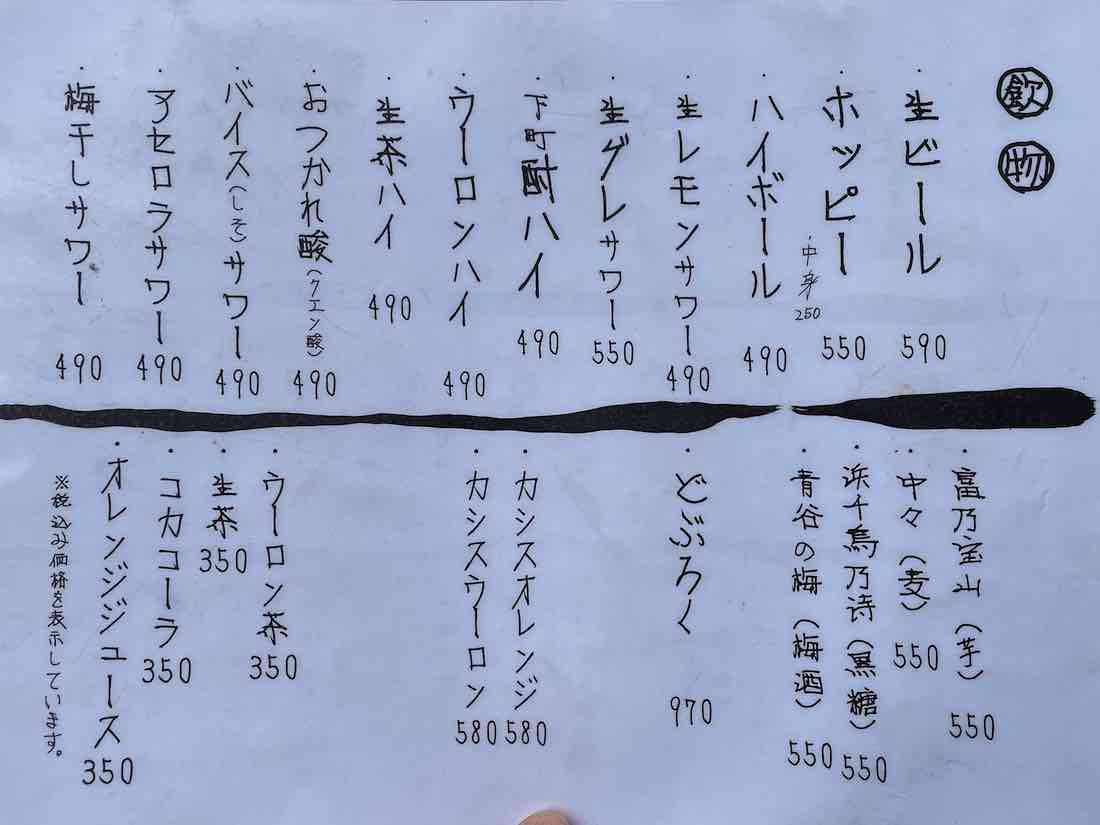 飲物
・生ビール 590
・ホッピー 550
・中身 250
・ハイボール 490
・生レモンサワー 490
・生グレサワー 550
・下町酎ハイ 490
・ウーロンハイ 490
・生茶ハイ 490
・おつかれ酸(クエン酸) 490
・バイス(しそ)サワー 490
・アセロラサワー 490
・梅干しサワー 490
・富乃宝山(芋) 550
・中々(麦) 550
・浜千鳥乃詩(黒糖) 550
・青谷の梅(梅酒) 550
・どぶろく 970
・カシスオレンジ 580
・カシスウーロン 580
・ウーロン茶 350
・生茶 350
・コカコーラ 350
・オレンジジュース 350
※税込み価格を表示しています。